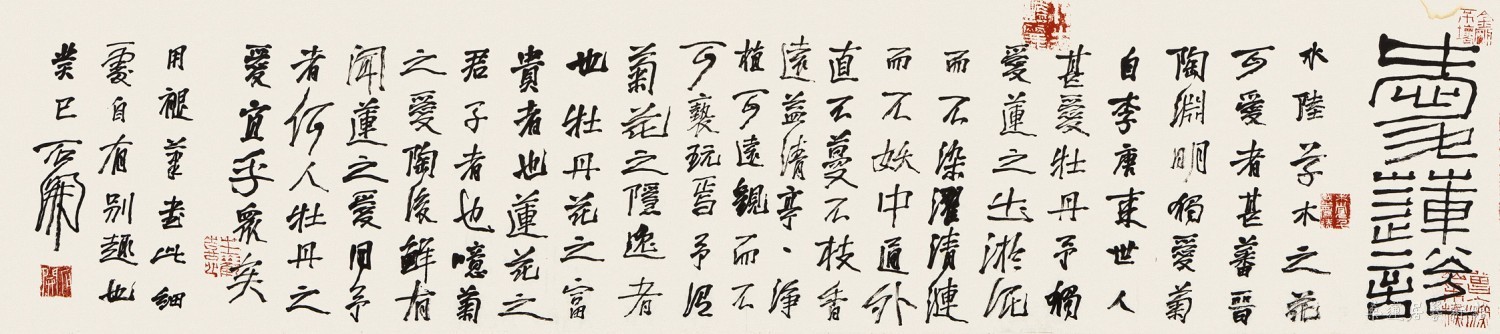 水陸草木之花
可愛者甚蕃晉
陶淵明獨愛菊
自李唐来世人
甚愛牡丹予獨
愛蓮之出淤泥
而不染濯清漣
而不妖中通外
直不蔓不枝香
遠益清亭、淨
植可遠觀而不
可褻玩焉予謂
菊花之隱逸者
也牡丹花之富
貴者也蓮花之
君子者也噫菊
之愛陶後鮮有
聞蓮之愛同予
者何人牡丹之
愛宜乎衆矣
用褪筆書此細
自有别趣也
癸巳石開